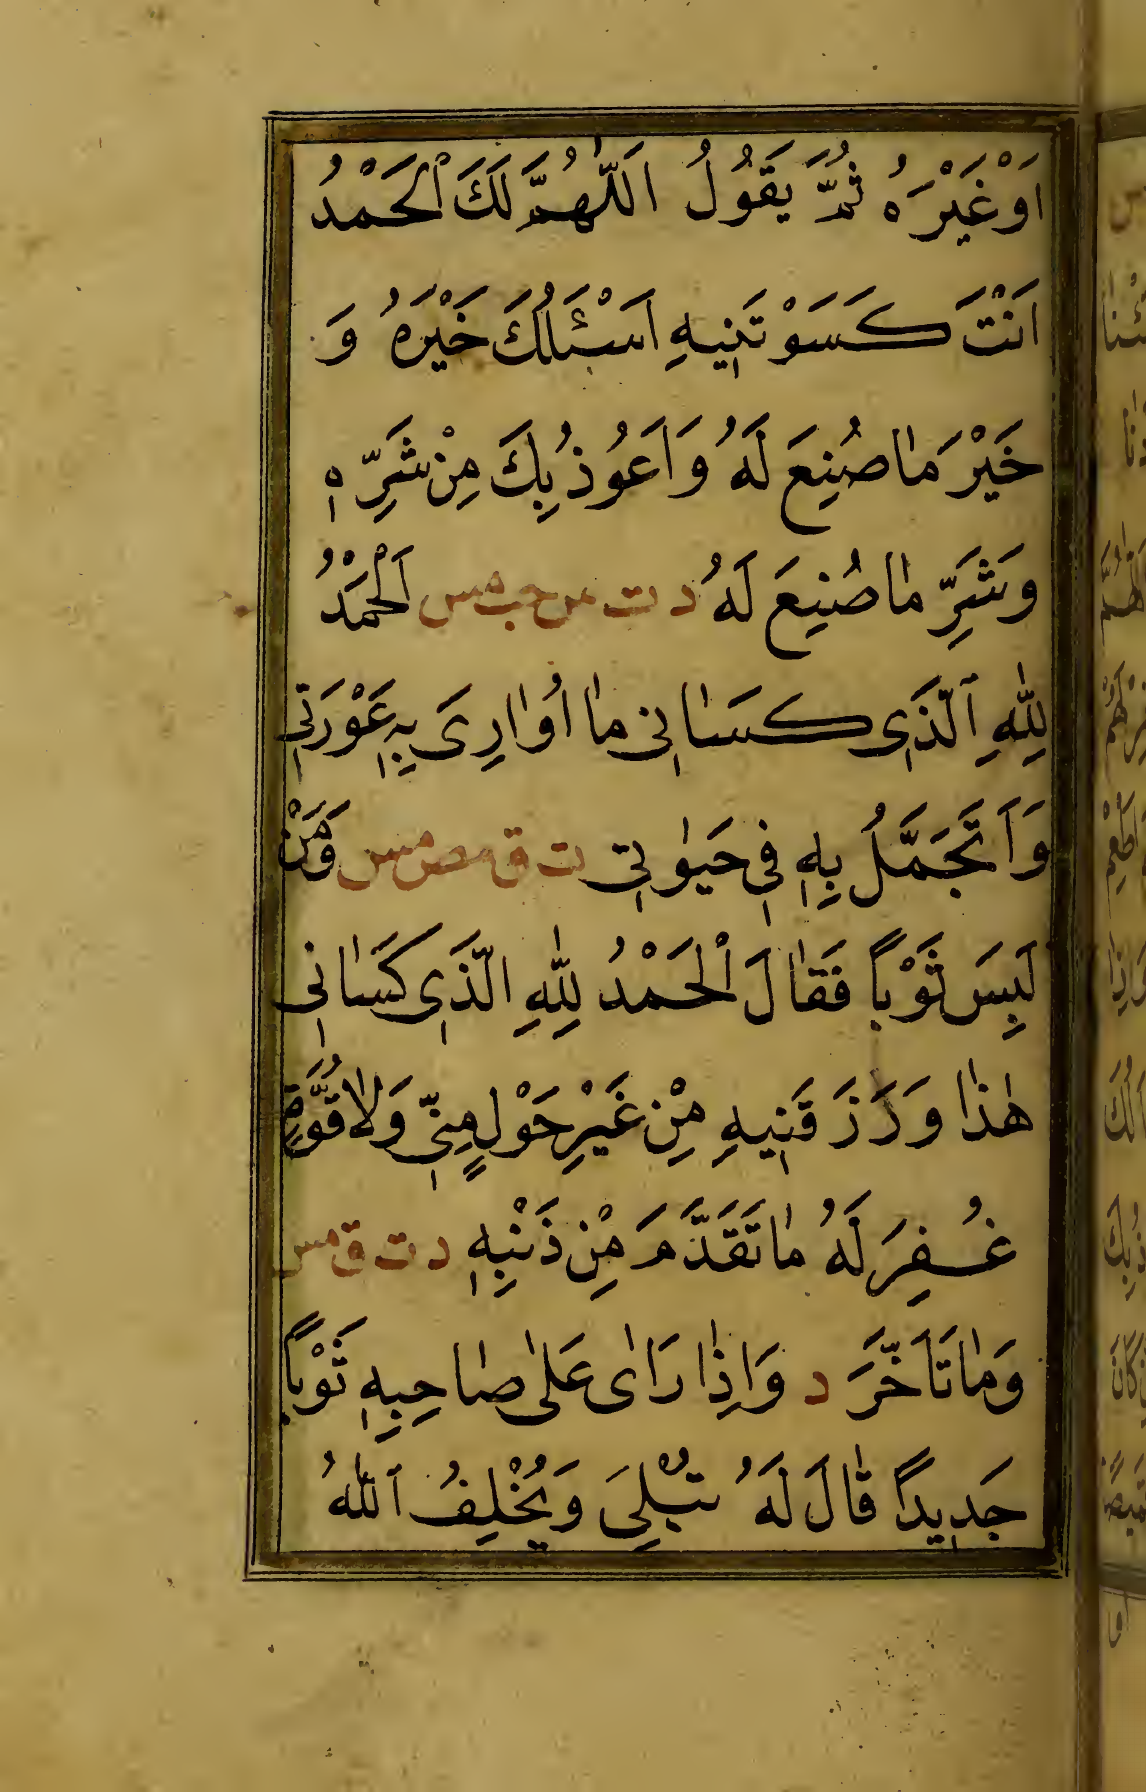 اَوْغَيْرَهُ ثُمَّ يَقُولُ اَللّٰهُمَّ لَكَ الْحَمْدُ
اَنْتَ كَسَوْتَنِيهِ اَسْئَلُكَ خَيْرَهُ وَ
خَيْرَ مٰا صُنِعَ لَهُ وَاَعُوذُ بِكَ مِنْ شَرِّهِ
وَشَرِّ مٰا صُنِعَ لَهُ د ت س حب مس اَلْحَمْدُ
لِلّٰهِ الَّذِى كَسَانِى مٰا اُوَارِى بِهِ عَوْرَتِى
وَاَتَجَمَّلُ بِهِ فِى حَيٰوتِى ت ق مص مس وَمَنْ
لَبِسَ ثَوْباً فَقَالَ اَلْحَمْدُ لِلّٰهِ الَّذِى كَسَانِى
هٰذٰا وَرَزَقَنِيهِ مِنْ غَيْرِ حَوْلٍ مِنِّى وَلاٰ قُوَّةٍ
غُفِرَ لَهُ مٰا تَقَدَّمَ مِنْ ذَنْبِهِ د ت ق مس
وَمٰا تَاَخَّرَ د وَاِذٰا رَاٰى عَلٰى صٰاحِبِهِ ثَوْباً
جَدِيداً قٰالَ لَهُ تُبْلِىَ وَيُخْلِفُ اللّٰهُ